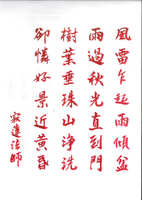 風雷乍起雨傾盆
雨過秋光直到門
樹葉垂珠山淨洗
卻憐好景近黃昏
寂達法師